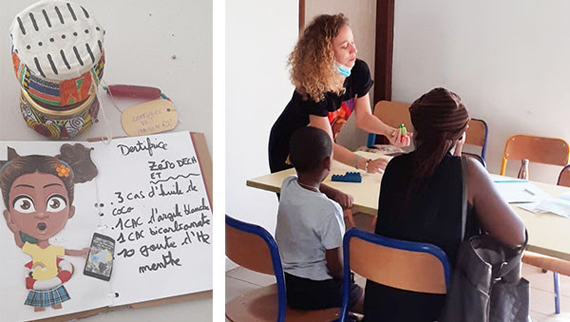 Dentifrice
Zéro DECH
ET
3 cas d'huile de
coco
1 CAC d'argile blanche
1 CAC bicarbonate
10 goutte d'HE
menthe